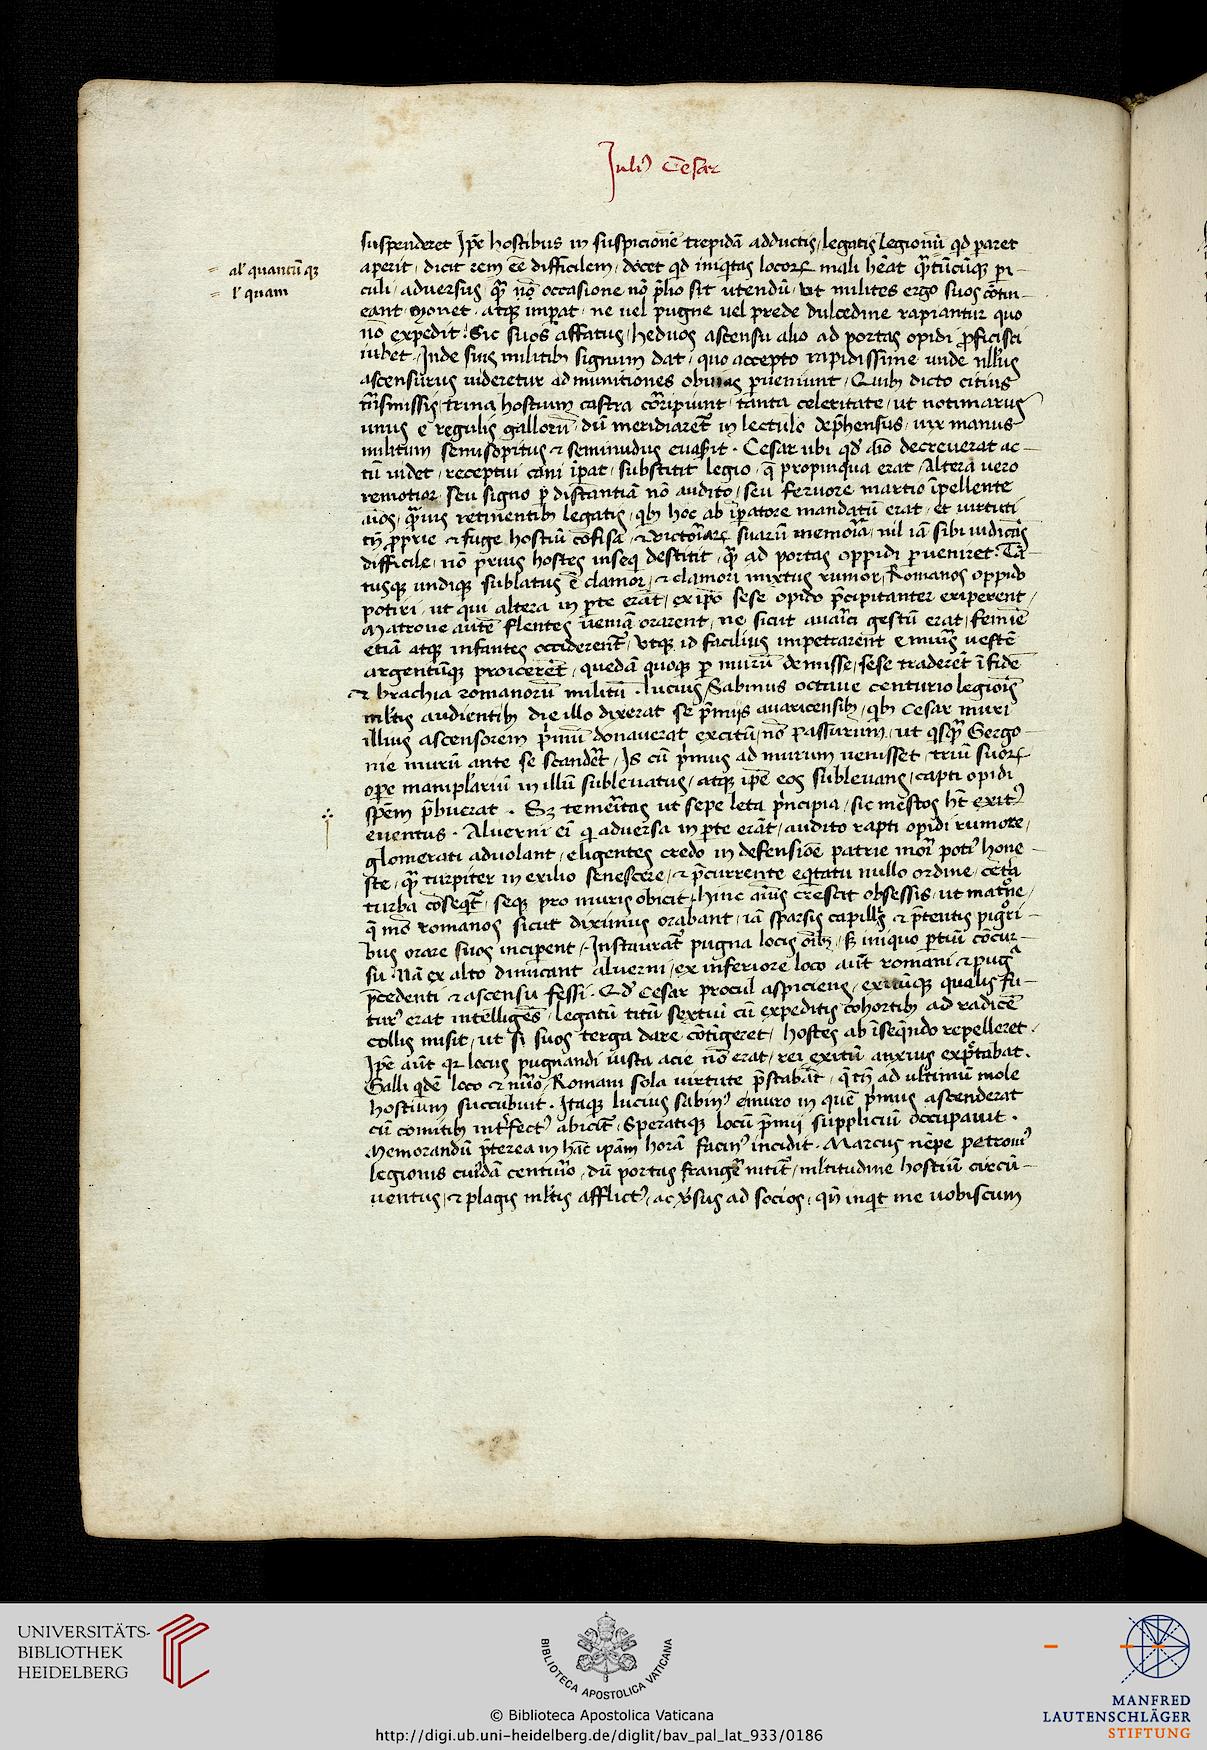 Juliꝰ Cesar
suspenderet Ip̄e hostibus in suspicionē trepidā adductis / legatis legionū qd̄ paret
al' quantū qꝫ
aperit / dicit rem eē difficilem / docet qd̄ iniqͥtas locoꝝ mali hēat qᷓtūcūqꝫ pi-
l' quam
culi / adversus / qᷓ nō occasione nō p̄lio sit utendū / ut milites ergo suos cōtin-
eant monet / atqꝫ imꝑat / ne vel pugne vel prede dulcedine rapiantur quo
nō expedit / Sic suos affatus / heduos ascensu alio ad portas opidi ꝓficisci
iubet / Inde suis militibꝫ signum dat / quo accepto rapidissime unde illius
ascensurus videretur ad munitiones ꝑveniunt / Quibꝫ dicto citius
trāsmissis / trina hostium castra corripiunt / tanta celeritate / ut
unus e regulis gallorū dū meridiaret in lectulo dep̄hensus / vix manus
militum semisopitus ⁊ seminudus evasit . Cesar ubi qd̄ aīo decreverat ac-
tū videt / receptui cani īpat / substitit legio / q̄ propinqua erat / Altera vero
remotior seu signo ꝓ distantiā nō audito / seu fervore martio īpellente
aīos / qᷓvis retinentibꝫ legatis / qͥbꝫ hoc ab īperatore mandatū erat / et virtuti
tn̄ ꝓprie ⁊ fuge hostiū cōfisa / ⁊ victoriaꝝ suarū memoria / nil iā sibi iudicās
difficile / nō prius hostes inseqͥ destitit / qᷓ ad portas oppidi ꝑveniret . Tā-
tusqꝫ undiqꝫ sublatus ē clamor / ⁊ clamori mixtus rumor / Romanos oppido
potiri / ut qui altera in ꝑte erāt / ex ip̄o sese opido p̄cipitanter eriperent /
Matrone autē flentes veniā orarent / ne sicut avarici gestū erat / femīe
etiā atqꝫ infantes occiderent / Utqꝫ id facilius impetrarent e muris vestē
argentūqꝫ proicerēt / quedā quoqꝫ ꝑ murū demisse / sese traderēt ī fidē
⁊ brachia romanorū militū . lucius Sabinus octave centurio legiois
mltis audientibꝫ die illo dixerat se p̄mijs avaricensibꝫ / qͥbꝫ Cesar muri
illius ascensorem primū donaverat excitū / nō passurum / ut qͥsqᷓ Gergo-
nie murū ante se scanderet / Is cū primus ad murum venisset / triū suoꝝ
ope manipl'ariū in illū sublevatus / atqꝫ ip̄e eos sublevans / capti opidi
spēm p̄buerat . Sꝫ temeritas ut sepe leta principia / sic mestos ht exitꝰ
eventus . Alverni ei qͥ adversa in ꝑte erāt / audito rapti opidi rumore /
glomerati advolant / eligentes credo in defensiōe patrie mori potiꝰ hone-
ste / qᷓ turpiter in exilio senescere / ⁊ p̄currente eqͥtatu nullo ordine / cetera
turba cōseqͥt / seqꝫ pro muris obicit / hinc aīus crescit obsessis / ut matrone /
q̄ mō romanos sicut diximus orabant / iā sparsis capillis ⁊ p̄tentis pignori-
bus orare suos incipent / Instaurat pugna locis oībꝫ / sꝫ iniquo ꝑtiū cōcur-
su . Nā ex alto dimicant alverni / ex inferiore loco aūt romani ⁊ pugᵃ
p̄cedenti ⁊ ascensu fessi . Qd̄ Cesar procul aspiciens / exitūqꝫ qualis fu-
turꝰ erat intelligēs / legatū titū sextiū cū expeditis cohortibꝫ ad radicē
collis misit / ut si suos terga dare cōtigeret / hostes ab īseqēndo repelleret .
Ip̄e aūt qr locus pugnandi iusta acie nō erat / rei exitū anxius exp̄tabat .
Galli qͥdē loco ⁊ nūo / Romani sola virtute p̄stabāt / q̄ tn̄ ad ultimū mole
hostium succubuit . Itaqꝫ lucius sabinꝰ e muro in quē primus ascenderat
cū comitibꝫ intˢfectꝰ abicit / Speratiqꝫ locū p̄mij suppliciū occupavit .
Memorandū p̄terea in hāc ipam horā facinꝰ incidit . Marcus nēpe petroniꝰ
legionis cuiꝰdā centurio / dū portas frangere nitit / mltitudine hostiū circū-
ventus / ⁊ plagis mltis afflictꝰ / ac v̄sus ad socios / qn̄ inqͥt me vobiscum
UNIVERSITÄTS-
BIBLIOTHEK
HEIDELBERG
BIBLIOTECA APOSTOLICA VATICANA
© Biblioteca Apostolica Vaticana
http://digi.ub.uni-heidelberg.de/diglit/bav_pal_lat_933/0186
MANFRED
LAUTENSCHLÄGER
STIFTUNG